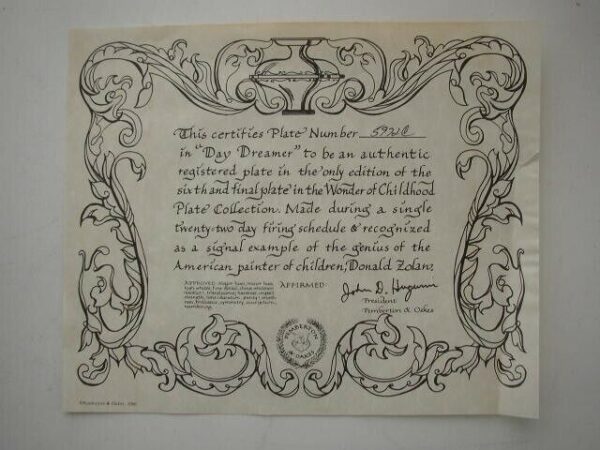 This certifies Plate Number 5921C
in "Day Dreamer" to be an authentic
registered plate in the only edition of the
sixth and final plate in the Wonder of Childhood
Plate Collection. Made during a single
twenty-two day firing schedule & recognized
as a signal example of the genius of the
American painter of children, Donald Zolan.
APPROVED
AFFIRMED
John D.
President
Pemberton & Oakes
PEMBERTON
& OAKES